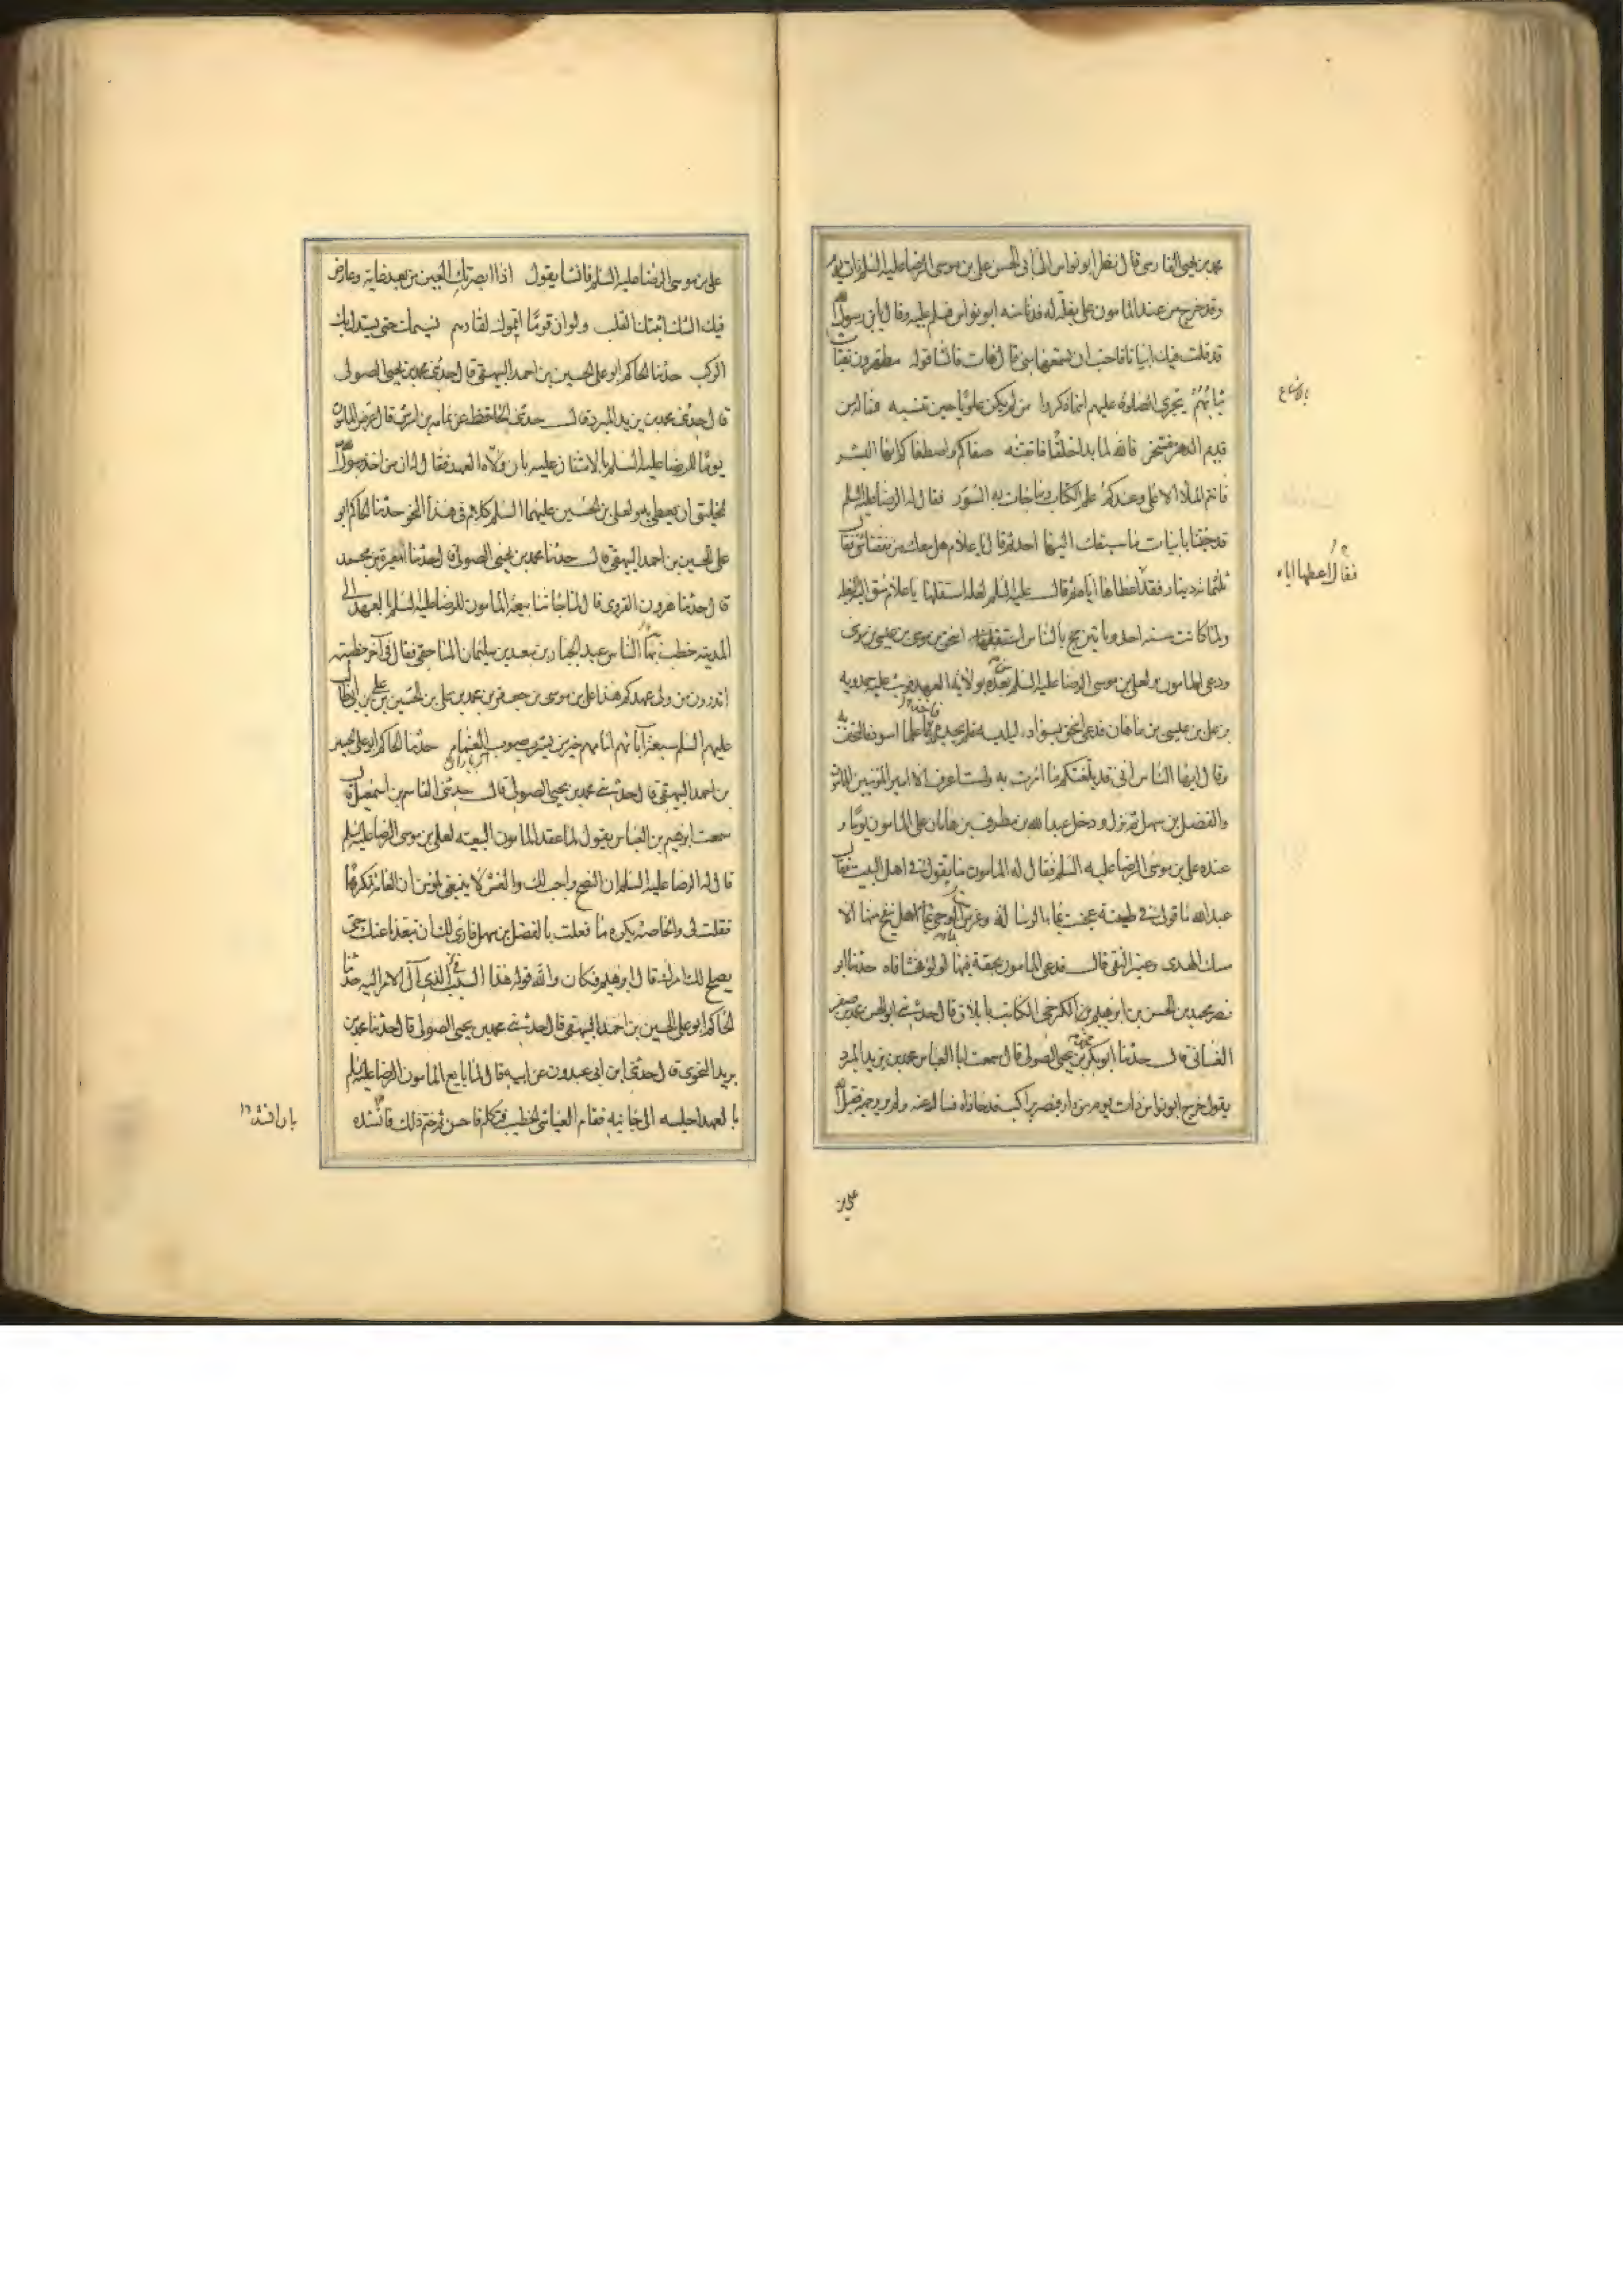 محمد بن يحيى الفارسى قال نظر ابو نواس الى ابى الحسن على بن موسى الرضا عليه السلم ذات يوم
وقد خرج من عند المامون على بغلة له فدنا منه ابو نواس فسلم عليه وقال يابن رسول الله
قد قلت فيك ابياتا فاحب ان تسمعها منى قال هات فانشا قوله مطهرون نقيات
ثيابهم تجرى الصلوة عليهم اينما ذكروا من لم يكن علويا حين تنسبه فما له من
قديم الدهر مفتخر فالله لما بدا خلقا فاتقنه صفاكم واصطفاكم ايها البشر
فانتم الملأ الاعلى وعندكم علم الكتاب وما جات به السور فقال له الرضا عليه السلم
قد جئتنا بابيات ما سبقك اليها احد ثم قال يا غلام هل معك من نفقتنا شى فقال
ثلثمائة دينار فقال اعطها اياه ثم قال عليه السلم لعله استقلها يا غلام سق اليه البغلة
ولما كانت سنه احدى وماتين حج بالناس اسحق بن موسى بن عيسى بن موسى
ودعى للمامون ولعلى بن موسى الرضا عليه السلم بعده بولاية العهد فوثب عليه حمدويه
بن على بن عيسى بن ماهان فدعى اسحق بسواد ليلبسه فلم يجده فاخذ علما اسود فالتحف به
وقال ايها الناس انى قد بلغتكم ما امرت به ولست اعرف الا امير المومنين المامون
والفضل بن سهل ثم نزل ودخل عبدالله بن مطرف بن هامان على المامون يوما و
عنده على بن موسى الرضا عليه السلم فقال له المامون ما يقول فى اهل البيت فقال
عبدالله ما قولى فى طينة عجنت بماء الرسالة وغرست بماء الوحى هل ينفخ منها الا
مسك الهدى وعنبر التقى قال فدعى المامون بحقة فيها لولو فحشا فاه حدثنا ابو
نصر محمد بن الحسن بن ابرهيم الكرخى الكاتب بايلاق قال حدثنى ابو الحسن محمد بن صقر
الغسانى قال حدثنا ابو بكر محمد بن يحيى الصولى قال سمعت ابا العباس محمد بن يزيد المبرد
يقول خرج ابو نواس ذات يوم من داره فبصر براكب قد حاذاه فسال عنه ولم ير وجهه فقيل انه
على بن
فقال اعطها اياه
على بن موسى الرضا عليه السلم فانشا يقول اذا ابصرتك العين من بعد غاية وعارض
فيك الشك اثبتك القلب ولو ان قوما امموك لقادهم نسيمك حتى يستدل بك
الركب حدثنا الحاكم ابو على الحسين بن احمد البيهقى قال حدثنى محمد بن يحيى الصولى
قال حدثنى محمد بن يزيد المبرد قال حدثنى الحافظ عن ثمامه بن اشرس قال عرض المامون
يوما للرضا عليه السلم بالامتنان عليه بان ولاه العهد فقال له ان من اخذ برسول الله
لخليق ان يعطى به ولعلى بن الحسين عليهما السلم كلام فى هذا النحو حدثنا الحاكم ابو
على الحسين بن احمد البيهقى قال حدثنا محمد بن يحيى الصولى قال حدثنا المغيرة بن محمد
قال حدثنا هرون القروى قال لما جائتنا بيعة المامون للرضا عليه السلم بالعهد الى
المدينه خطب بها الناس عبد الجبار بن سعد بن سليمان المساحقى فقال فى آخر خطبته
اتدرون من ولى عهدكم هذا على بن موسى بن جعفر بن محمد بن على بن الحسين بن على بن ابيطالب
عليهم السلم سبعة آباؤهم ماهم خير من يشرب صوب الغمام حدثنا الحاكم ابو على الحسين
بن احمد البيهقى قال حدثنى محمد بن يحيى الصولى قال حدثنى القاسم بن اسمعيل قال
سمعت ابرهيم بن العباس يقول لما عقد المامون البيعه لعلى بن موسى الرضا عليه السلم
قال له الرضا عليه السلم ان النصح واجب لك والغش لا ينبغى لمومن ان العامه تكره ما
فعلت بى والخاصه يكره ما فعلت بالفضل بن سهل فارى لك ان تبعدنا عنك حتى
يصلح لك امرك قال ابرهيم فكان والله قوله هذا السبب فى الذى آل الامر اليه حدثنا
الحاكم ابو على الحسين بن احمد البيهقى قال حدثنى محمد بن يحيى الصولى قال حدثنا محمد بن
يزيد النحوى قال حدثنى ابن ابى عبدون عن ابيه قال لما بايع المامون الرضا عليه السلم
بالعهد اجلسه الى جانبه فقام العباس الخطيب فتكلم فاحسن ثم ختم ذلك فانشده